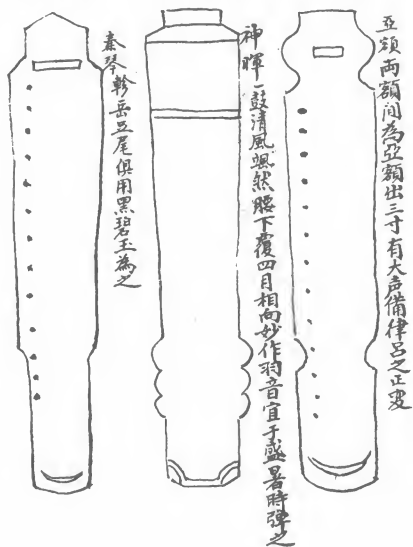 亞額兩額间為亞額出三寸有大声備律呂之正变
神暉一鼓清風颯然腰下覆四月相向妙作羽音宜于盛暑時弹之
秦琴軫岳足尾俱用黑碧玉為之